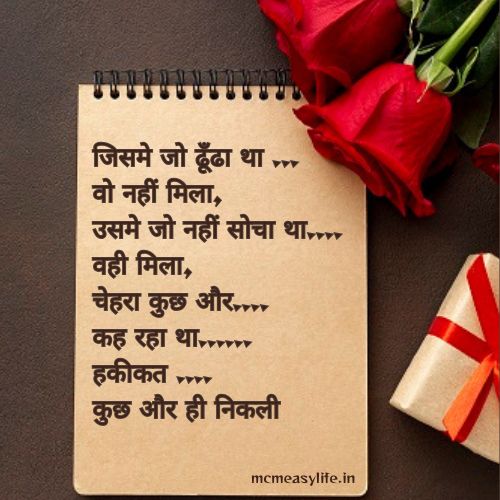 जिसमे जो ढूँढा था ,,,
वो नहीं मिला,
उसमे जो नहीं सोचा था,,,,
वही मिला,
चेहरा कुछ और,,,,
कह रहा था,,,,,,
हकीकत ,,,,
कुछ और ही निकली
mcmeasylife.in